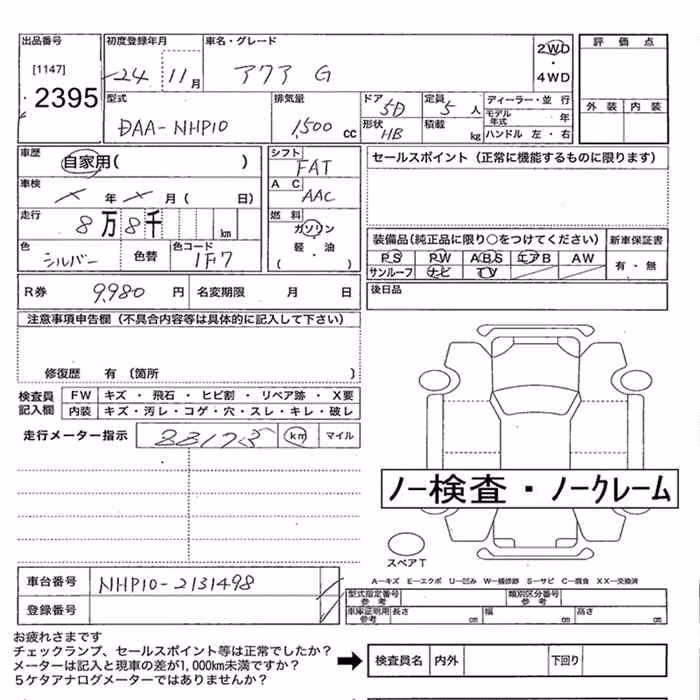 出品番号 初度登録年月 車名・グレード 2WD・4WD 評価点
[1147] 24 11月 アクア G 外装 内装
2395
型式 排気量 ドア 5D 定員 5人 ディーラー・並行
DAA-NHP10 1,500cc 形状 HB 積載 kg モデル年式 年
ハンドル 左・右
車歴 自家用( ) シフト FAT セールスポイント(正常に機能するものに限ります)
車検 ×年×月(日) AC AAC
走行 8万8千 km 燃料 ガソリン 軽・油 ( )
装備品(純正品に限り○をつけてください) 新車保証書
色 シルバー 色替 色コード 1F7 PS PW ABS エアB AW 有・無
サンルーフ ナビ TV
R券 9,980円 名変期限 月 日 後日品
注意事項申告欄(不具合内容等は具体的に記入して下さい)
修復歴 有(箇所 )
検査員記入欄 FW キズ・飛石・ヒビ割・リペア跡・X要
内装 キズ・汚レ・コゲ・穴・スレ・キレ・破レ
走行メーター指示 88175 km マイル
ノー検査・ノークレーム
スペアT
車台番号 NHP10-2131498
A-キズ E-エクボ U-凹み W-補修跡 S-サビ C-腐食 XX-交換済
登録番号
型式指定番号 参考 類別区分番号 参考
車庫証明用 参考 長さ cm 幅 cm 高さ cm
お疲れさまです
チェックランプ、セールスポイント等は正常でしたか?
メーターは記入と現車の差が1,000km未満ですか?
5ケタアナログメーターではありませんか?
検査員名 内外 下回り